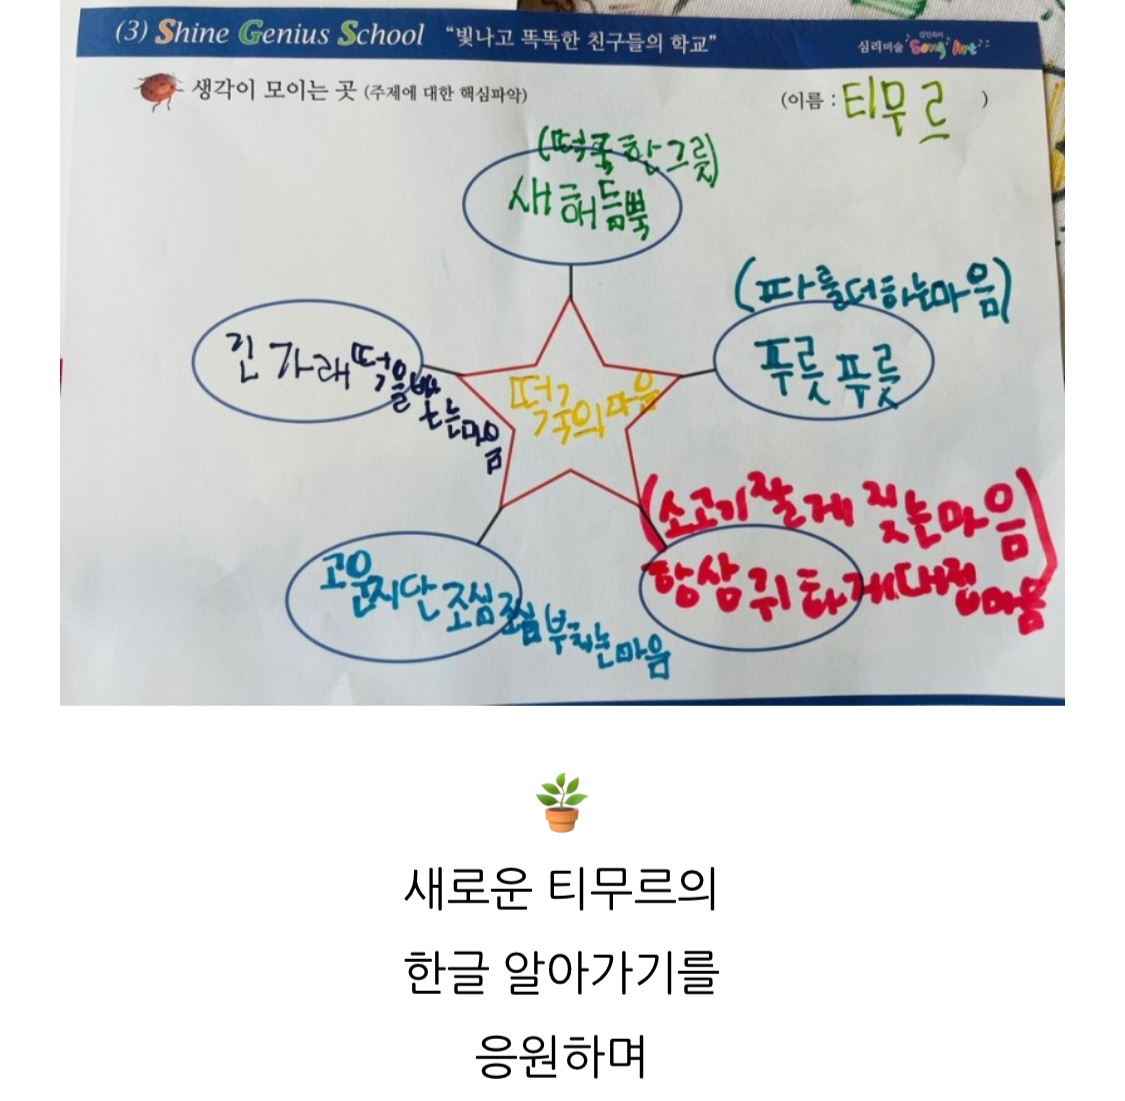 (3) Shine Genius School "빛나고 똑똑한 친구들의 학교"
심리미술 Song Art
생각이 모이는 곳 (주제에 대한 핵심파악)
(이름 : 티무르 )
(떡국 한 그릇)
새해 듬뿍
(파를 더하는 마음)
푸릇 푸릇
긴 가래떡을 받는 마음
떡국의 마음
(소고기 잘게 찢는 마음)
항상 귀하게 대접 마음
고운 지단 조심 조심 부치는 마음
새로운 티무르의
한글 알아가기를
응원하며